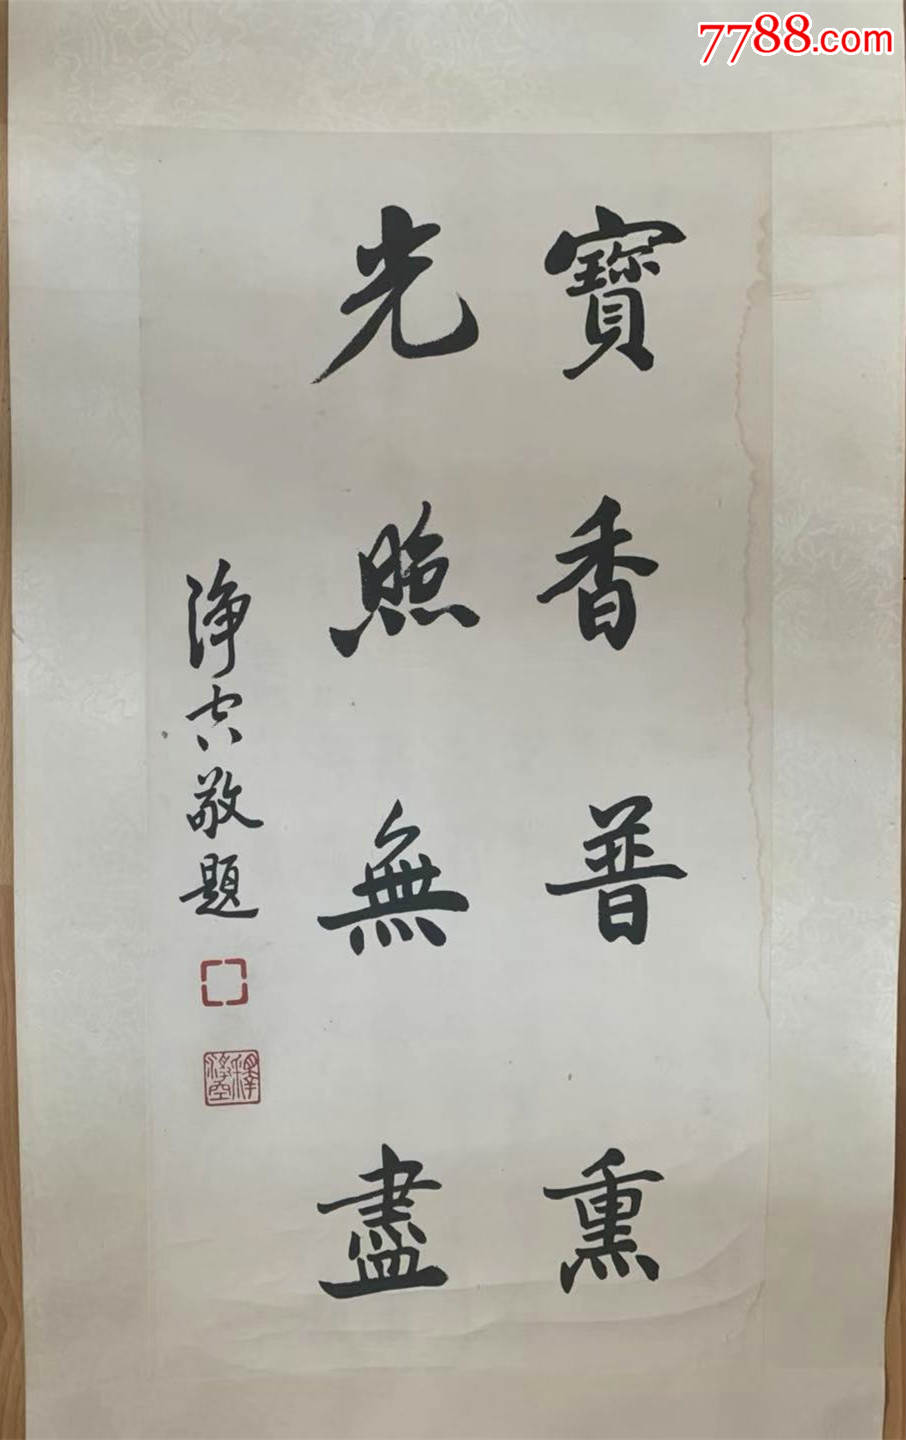 7788.com
寶香普熏
光照無盡
淨空敬題
釋淨空